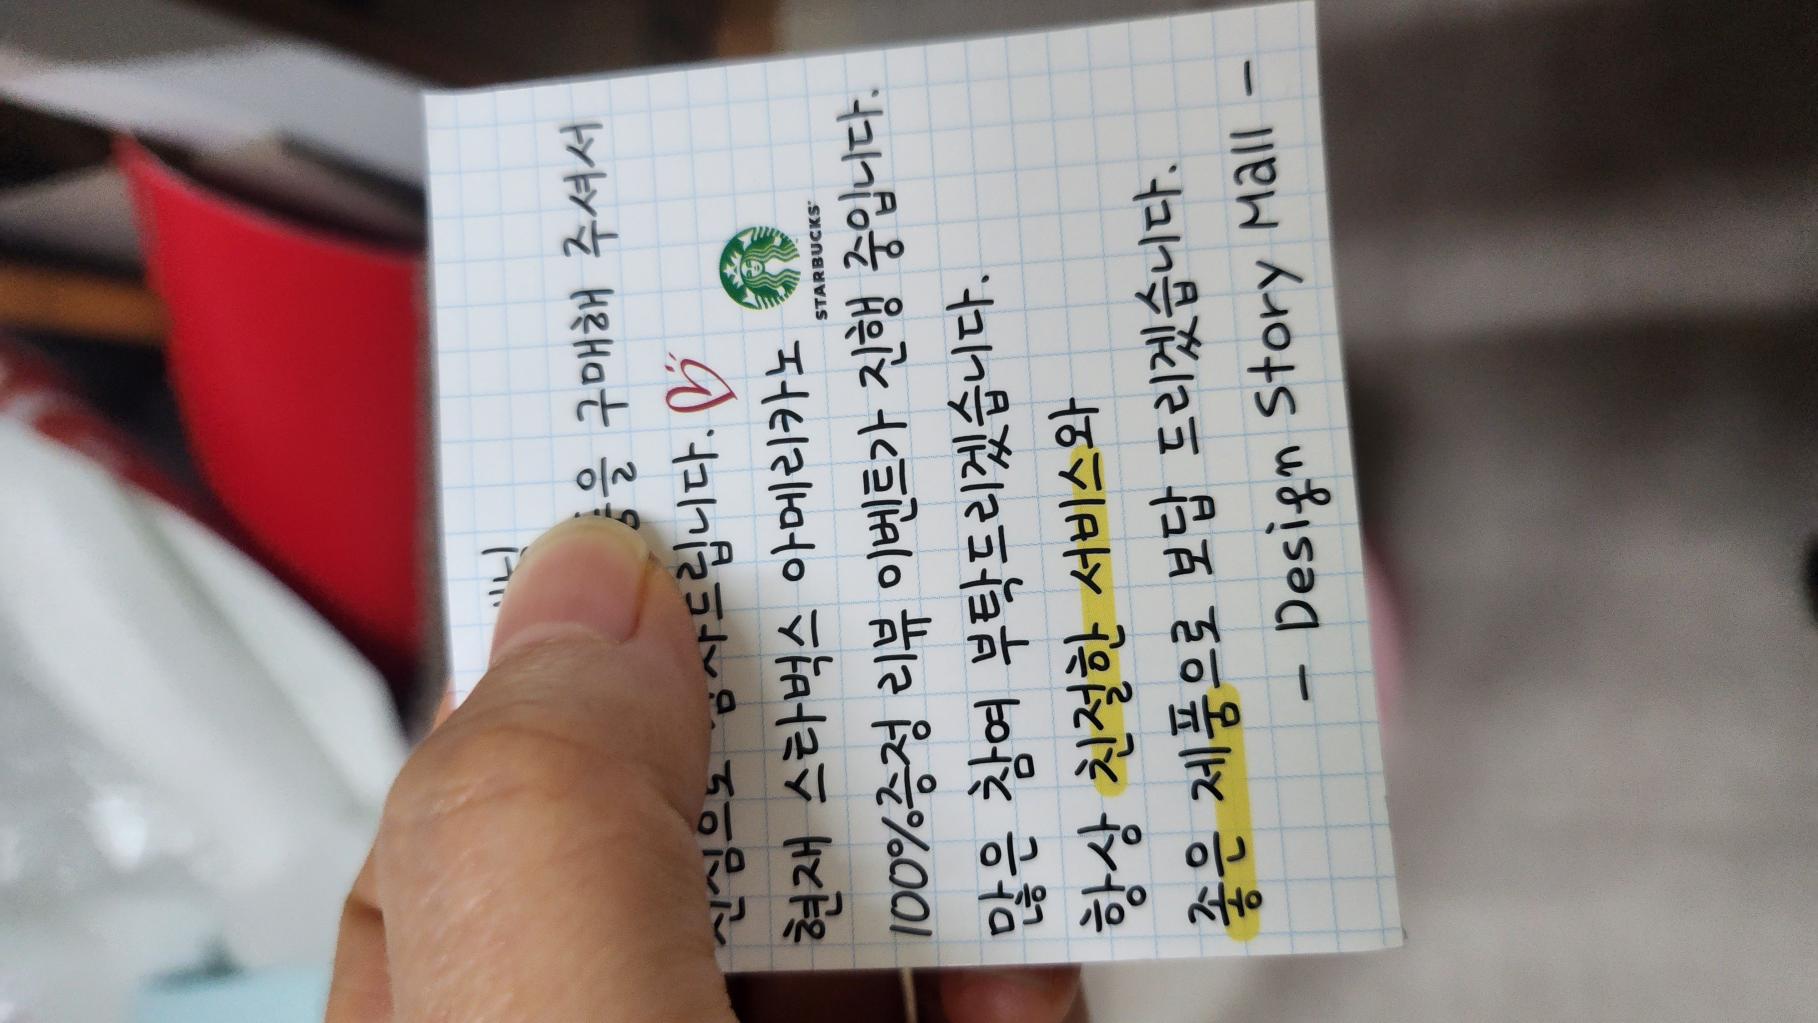 구매해 주셔서
진심으로 감사드립니다.
현재 스타벅스 아메리카노
STARBUCKS
100%증정 리뷰 이벤트가 진행 중입니다.
많은 참여 부탁드리겠습니다.
항상 친절한 서비스와
좋은 제품으로 보답 드리겠습니다.
- Design Story Mall -